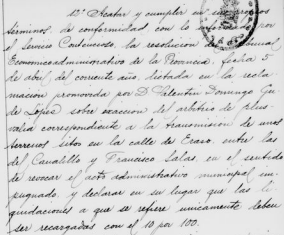 42º Acatar y cumplir en sus propios
términos, de conformidad con lo informado por
el Servicio Contencioso, la resolución del Tribunal
Economicoadministrativo de la Provincia, fecha 5
de abril del corriente año, dictada en la recla
mación promovida por D. Valentin Domingo Gu
de Lopez sobre exaccion del arbitrio de plus
valia correspondiente a la transmision de unos
terrenos sitos en la calle de Eraso, entre las
del Canalillo y Francisco Salas, en el sentido
de revocar el acto administrativo municipal im
pugnado, y declarar en su lugar que las li
quidaciones a que se refiere unicamente deben
ser recargadas con el 10 por 100.